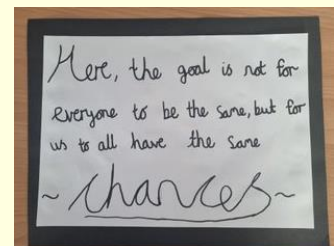 Here, the goal is not for
everyone to be the same, but for
us to all have the same
~ chances ~